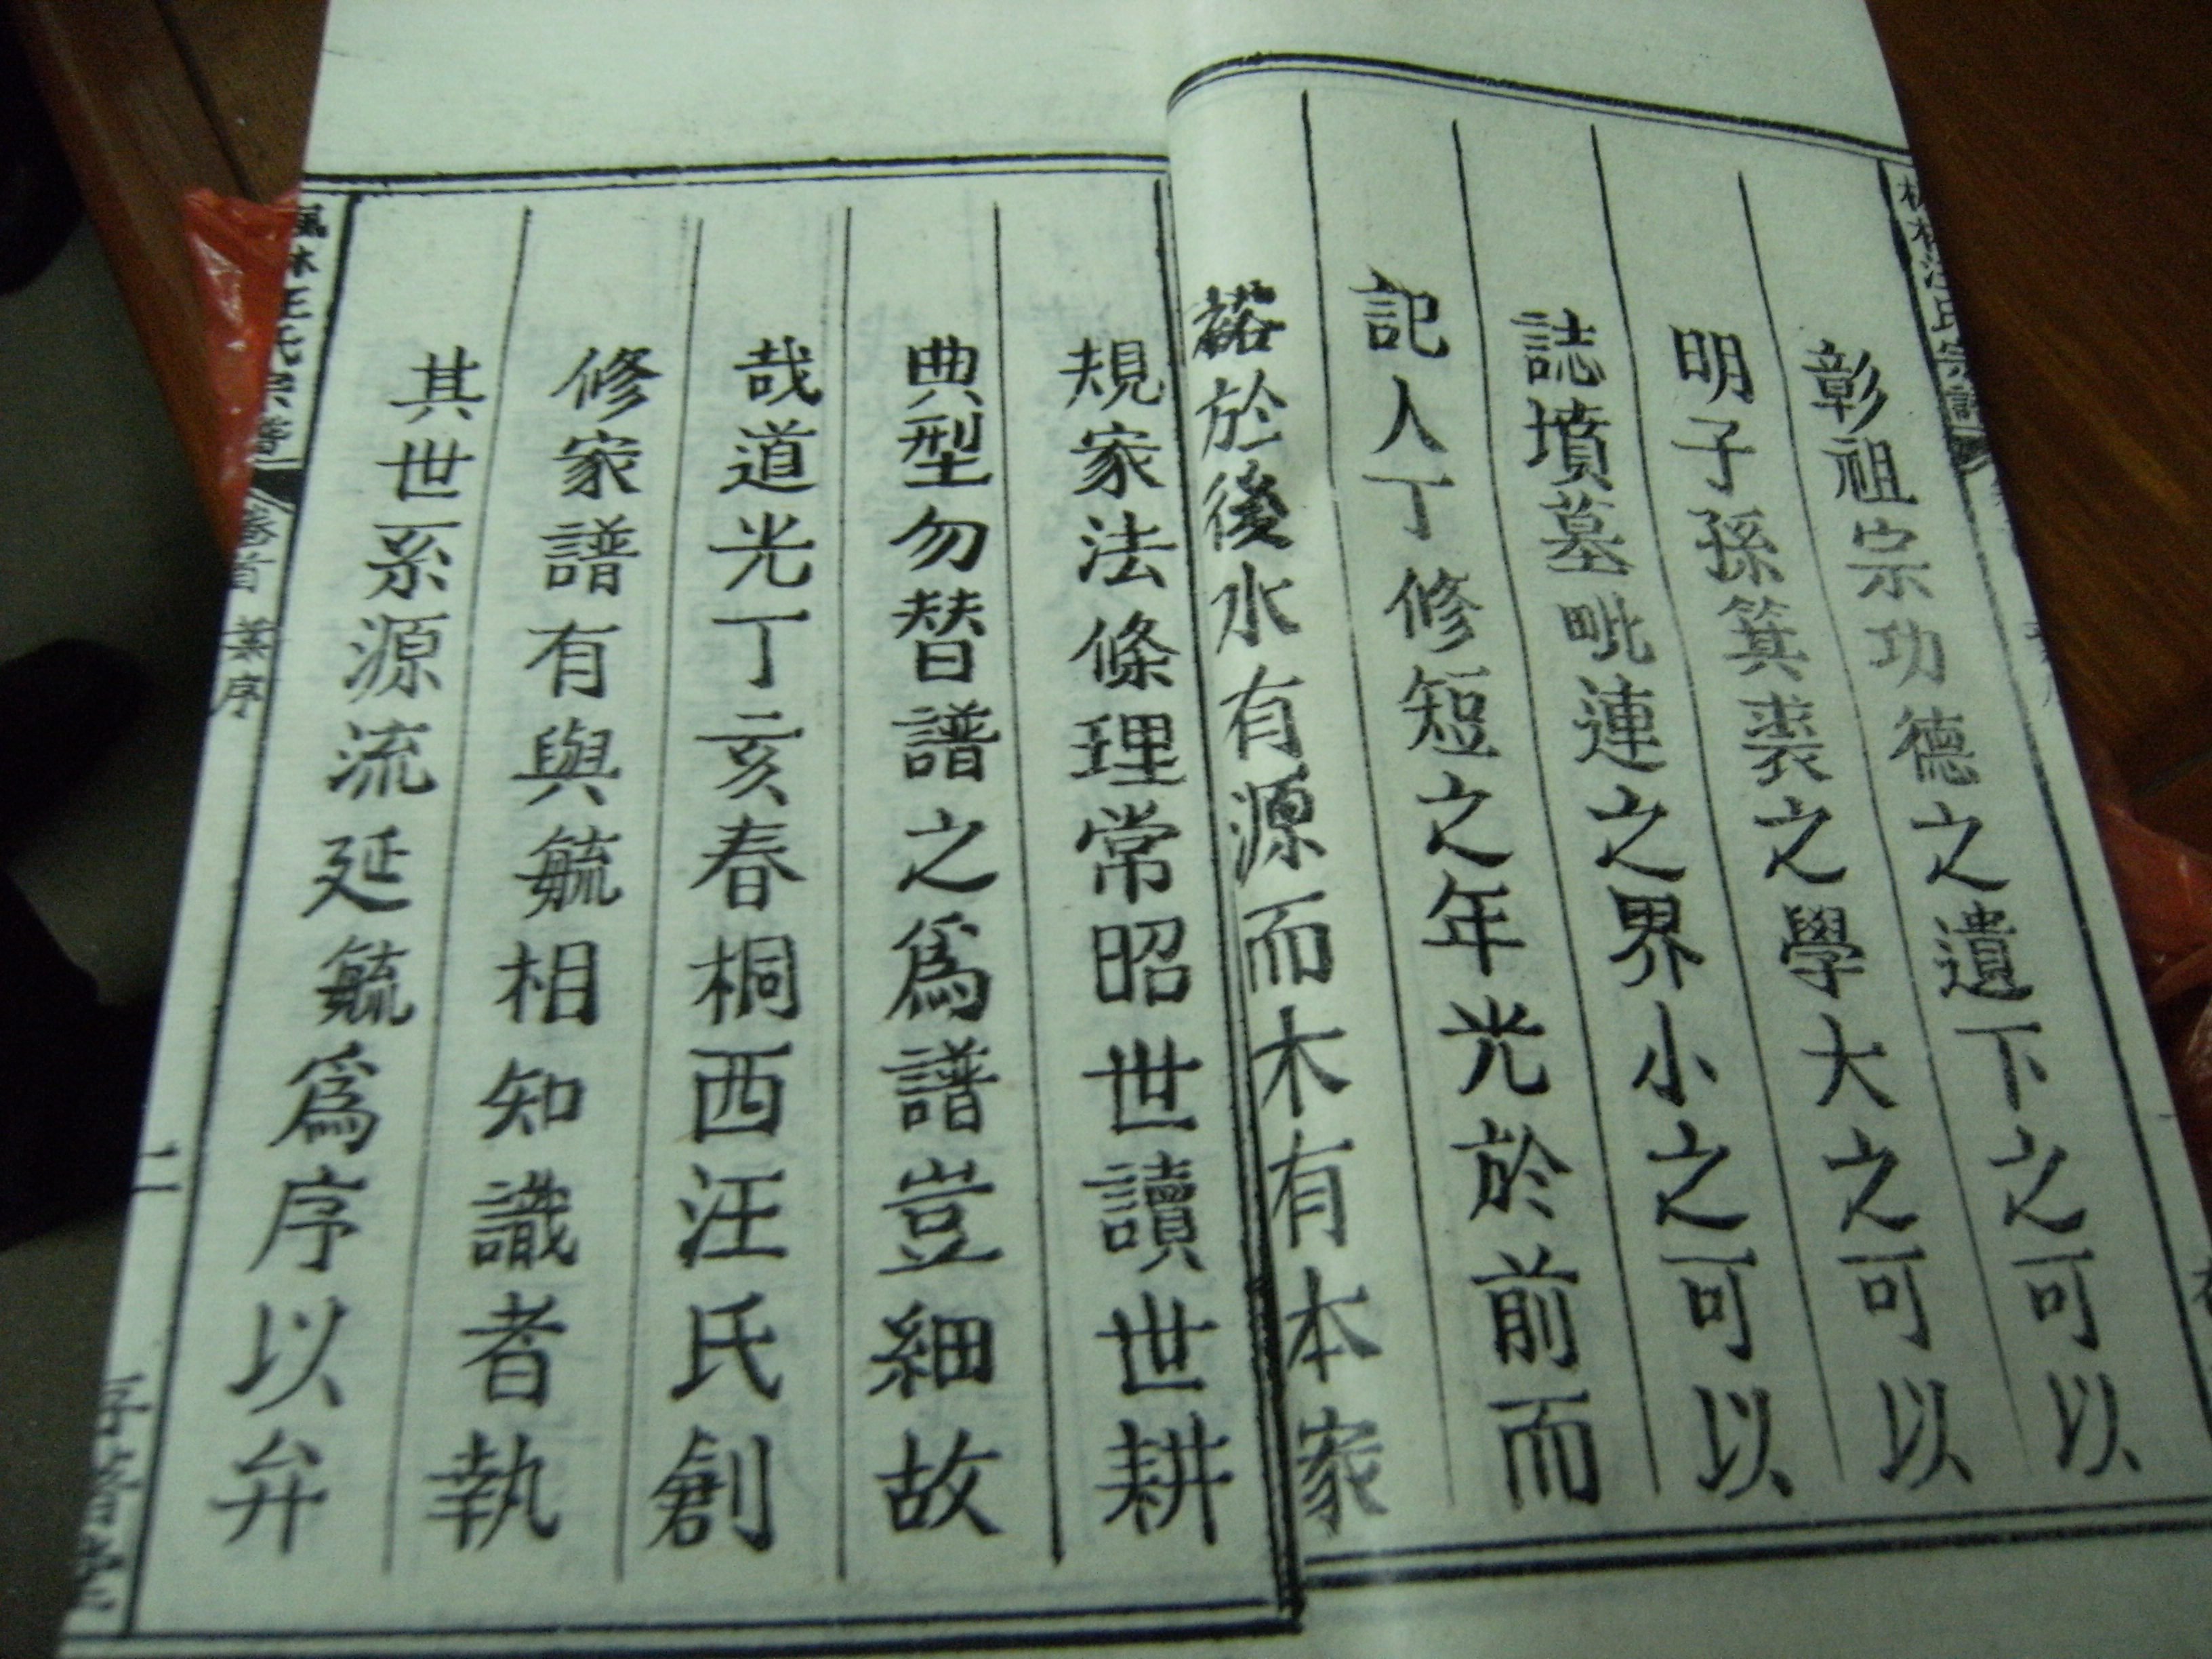 彰祖宗功德之遺下之可以
明子孫箕裘之學大之可以
誌墳墓毗連之界小之可以
記人丁修短之年光於前而
裕於後水有源而木有本家
規家法條理常昭世讀世耕
典型勿替譜之為譜豈細故
哉道光丁亥春桐西汪氏創
修家譜有與毓相知識者執
其世系源流延毓為序以弁
楓林汪氏宗譜
卷首
葉序
二